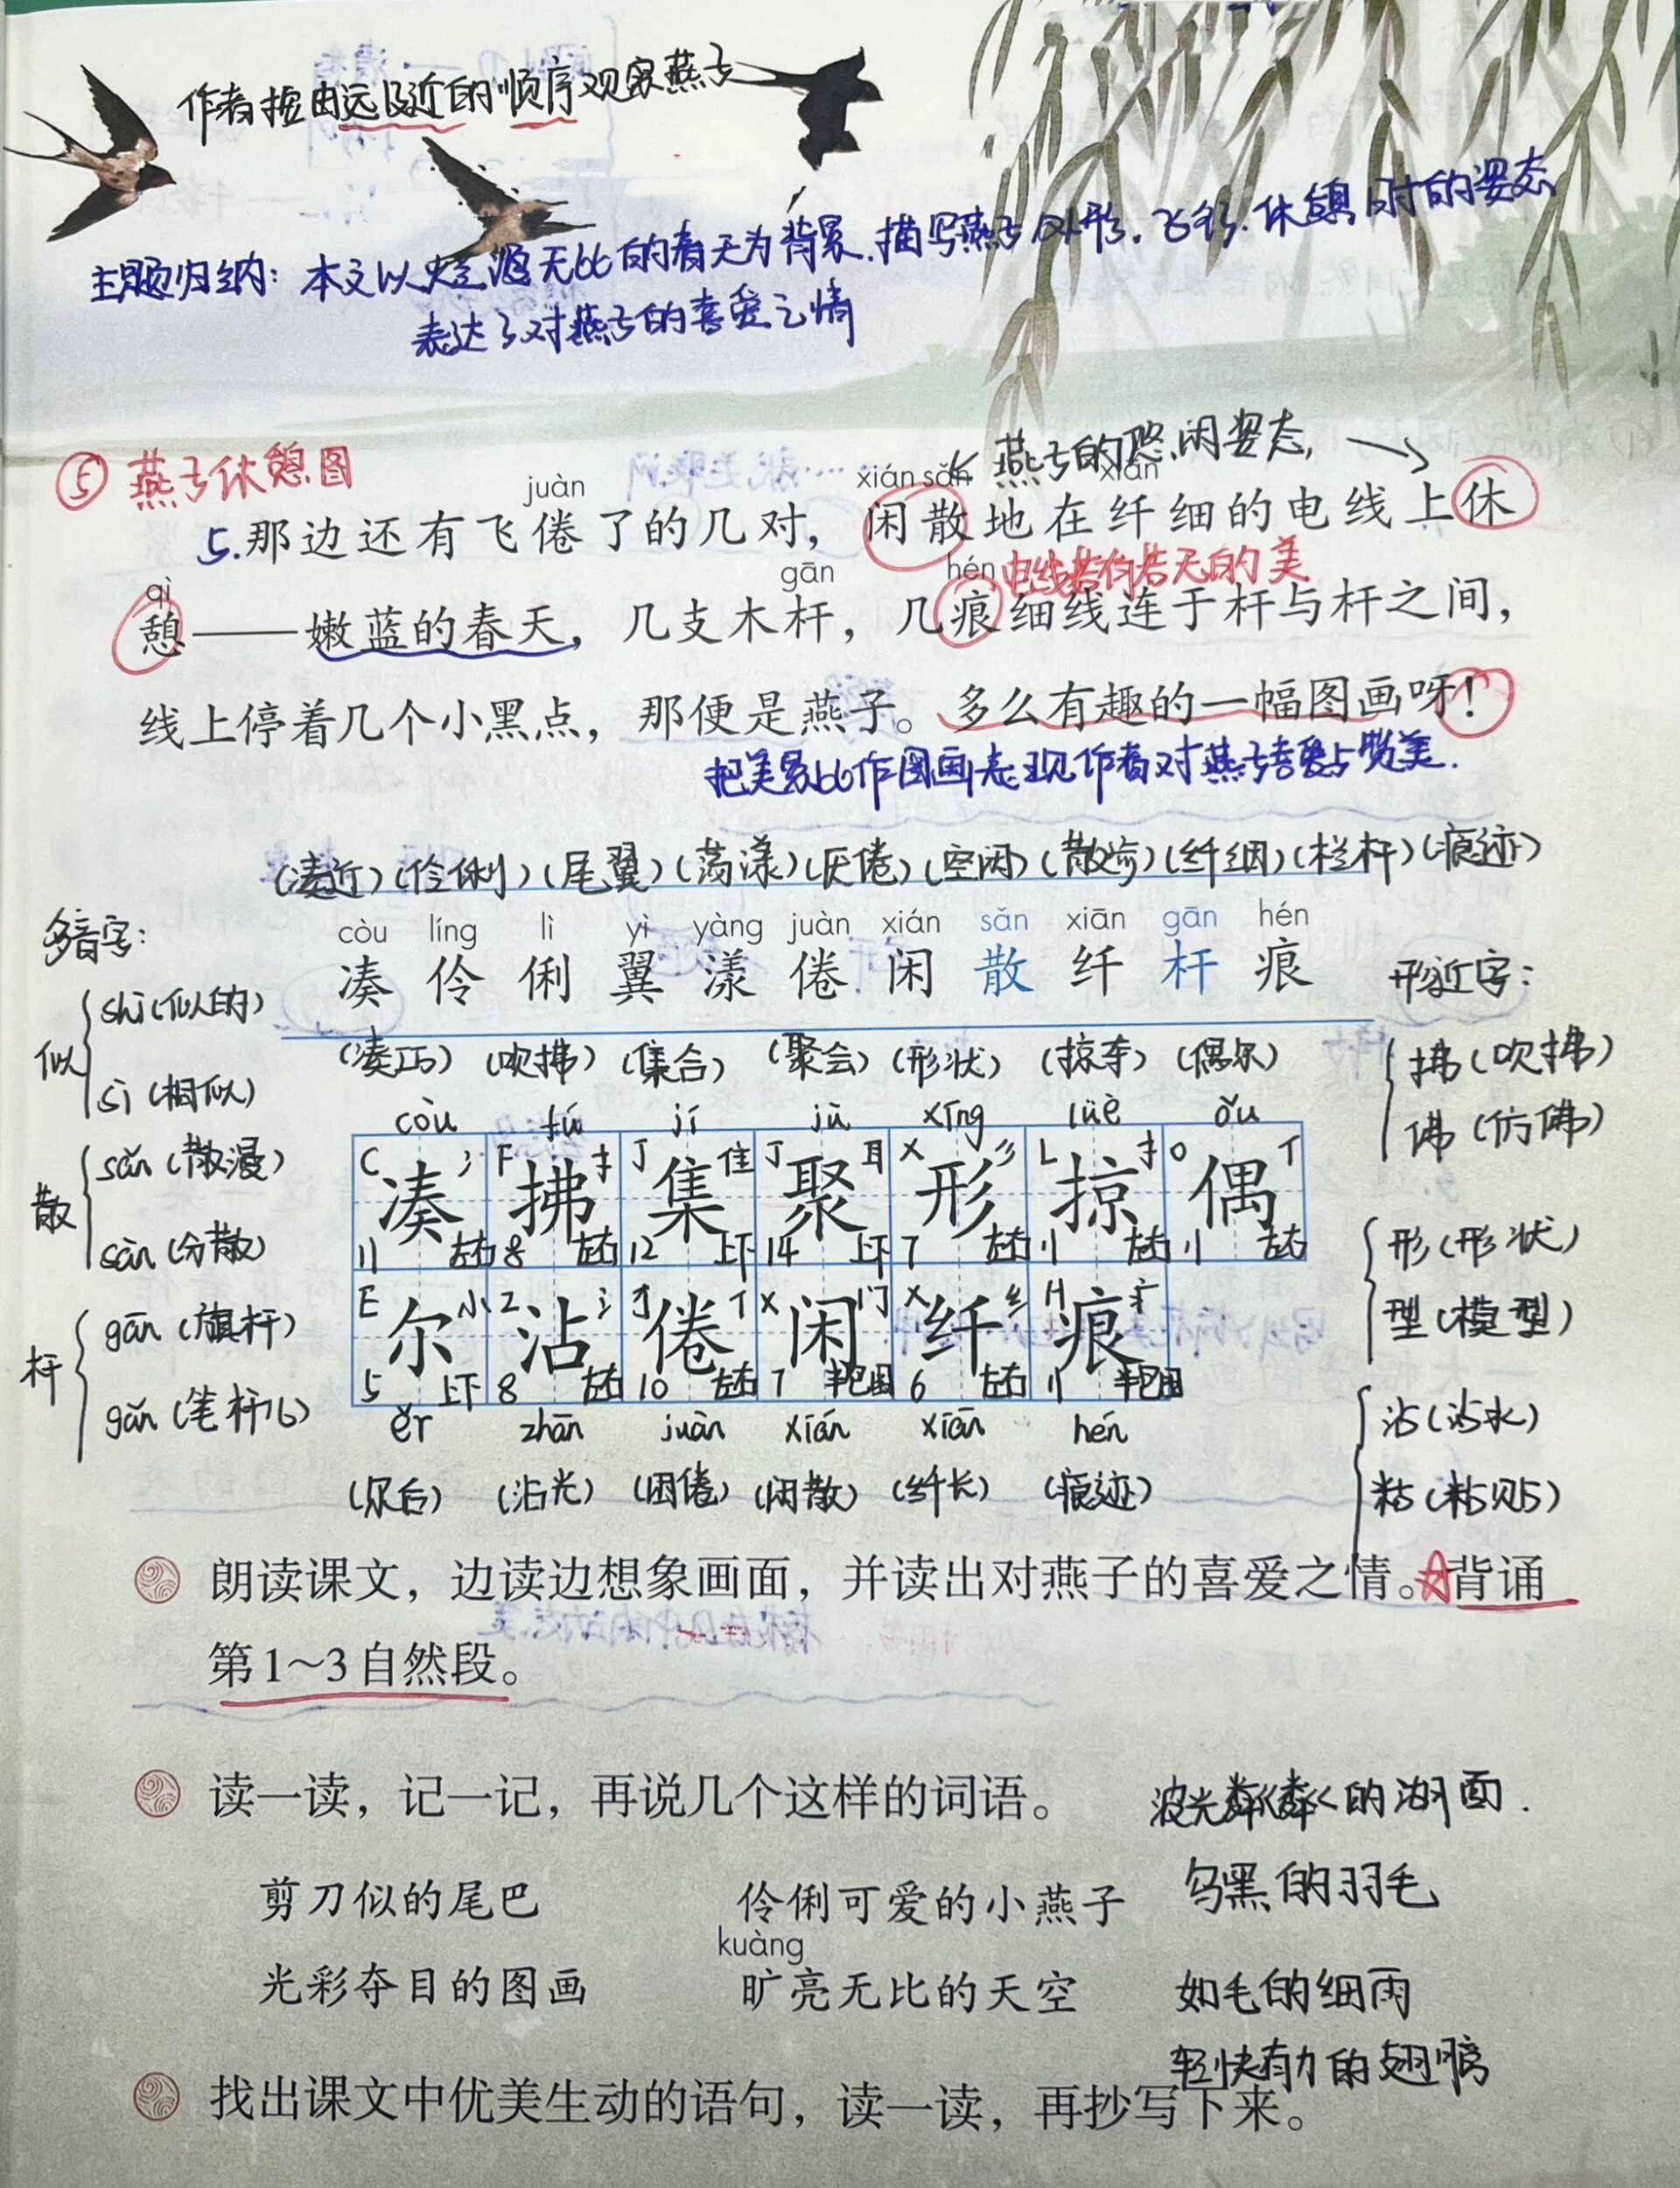 作者按由远及近的顺序观察燕子
主题归纳：本文以烂漫无比的春天为背景，描写燕子外形、飞行、休憩时的姿态
表达了对燕子的喜爱之情
⑤ 燕子休憩图
燕子的悠闲姿态，
juàn xián sǎn xiān
5.那边还有飞倦了的几对，闲散地在纤细的电线上休
电线若有若无的美
qì gān hén
憩——嫩蓝的春天，几支木杆，几痕细线连于杆与杆之间，
线上停着几个小黑点，那便是燕子。多么有趣的一幅图画呀！
把美景比作图画表现作者对燕子喜爱与赞美.
(凑近)(伶俐)(尾翼)(荡漾)(厌倦)(空闲)(散步)(纤细)(栏杆)(痕迹)
còu líng lì yì yàng juàn xián sǎn xiān gān hén
凑 伶 俐 翼 漾 倦 闲 散 纤 杆 痕
多音字：
似
shì(似的)
sì(相似)
散
sǎn(散漫)
sàn(分散)
杆
gān(旗杆)
gǎn(笔杆儿)
(凑巧) (吹拂) (集合) (聚会) (形状) (掠夺) (偶尔)
còu fú jí jù xíng lüè ǒu
C 冫 F 扌 J 隹 J 耳 X 彡 L 扌 O 亻
凑 拂 集 聚 形 掠 偶
11 左右 8 左右 12 上下 14 上下 7 左右 11 左右 11 左右
E 小 Z 氵 J 亻 X 门 X 纟 H 疒
尔 沾 倦 闲 纤 痕
5 上下 8 左右 10 左右 7 半包围 6 左右 11 半包围
ěr zhān juàn xián xiān hén
(尔后) (沾光) (困倦) (闲散) (纤长) (痕迹)
形近字：
拂(吹拂)
佛(仿佛)
形(形状)
型(模型)
沾(沾水)
粘(粘贴)
朗读课文，边读边想象画面，并读出对燕子的喜爱之情。背诵
第1～3自然段。
读一读，记一记，再说几个这样的词语。
波光粼粼的湖面.
剪刀似的尾巴 伶俐可爱的小燕子
乌黑的羽毛
kuàng
光彩夺目的图画 旷亮无比的天空
如毛的细雨
轻快有力的翅膀
找出课文中优美生动的语句，读一读，再抄写下来。